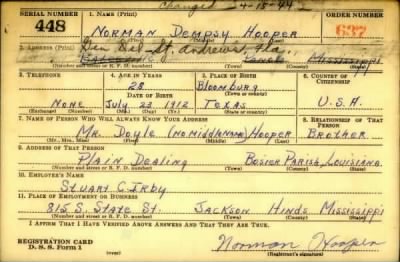 Changed 4-15-44
SERIAL NUMBER 1. NAME (Print) ORDER NUMBER
448 NORMAN DEMPSY HOOPER 637
(First) (Middle) (Last)
2. ADDRESS (Print)
Gen Del St. Andrews, Fla.,
Mississippi
(Number and street or R. F. D. number) (Town) (County) (State)
3. TELEPHONE 4. AGE IN YEARS 5. PLACE OF BIRTH 6. COUNTRY OF CITIZENSHIP
28 Bloomburg
DATE OF BIRTH (Town or county)
NONE July 23 1912 TEXAS U.S.A.
(Exchange) (Number) (Mo.) (Day) (Yr.) (State or country)
7. NAME OF PERSON WHO WILL ALWAYS KNOW YOUR ADDRESS 8. RELATIONSHIP OF THAT PERSON
Mr. Doyle (No middle name) Hooper Brother
(Mr., Mrs., Miss) (First) (Middle) (Last)
9. ADDRESS OF THAT PERSON
Plain Dealing Bosier Parish, Louisiana
(Number and street or R. F. D. number) (Town) (County) (State)
10. EMPLOYER'S NAME
Stuart C. Irby
11. PLACE OF EMPLOYMENT OR BUSINESS
815 S. State St. Jackson Hinds Mississippi
(Number and street or R. F. D. number) (Town) (County) (State)
I AFFIRM THAT I HAVE VERIFIED ABOVE ANSWERS AND THAT THEY ARE TRUE.
REGISTRATION CARD
D. S. S. Form 1
Norman Hooper
(Registrant's signature)